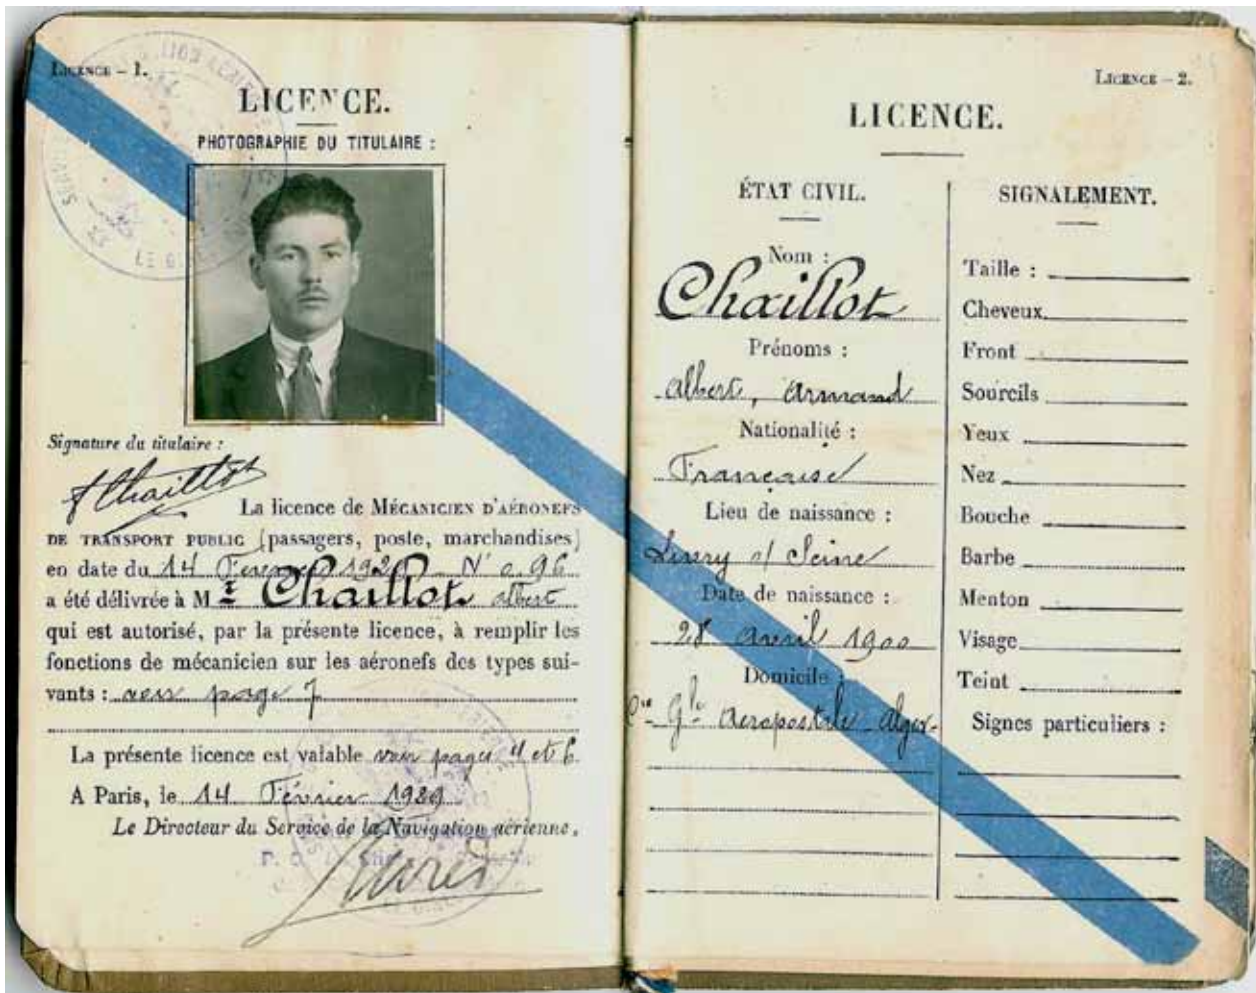 LICENCE – 1.
LICENCE.
PHOTOGRAPHIE DU TITULAIRE :
Signature du titulaire :
Chaillot
La licence de MÉCANICIEN D'AÉRONEFS
DE TRANSPORT PUBLIC (passagers, poste, marchandises)
en date du 14 N° 96
a été délivrée à Mr Chaillot albert
qui est autorisé, par la présente licence, à remplir les
fonctions de mécanicien sur les aéronefs des types sui-
vants : voir page 7
La présente licence est valable voir pages 4 et 6
A Paris, le 14 Février 1929
Le Directeur du Service de la Navigation aérienne,
LICENCE – 2.
LICENCE.
ÉTAT CIVIL.
Nom :
Chaillot
Prénoms :
Albert, Armand
Nationalité :
Française
Lieu de naissance :
s/ Seine
Date de naissance :
28 avril 1900
Domicile :
Cie Gle Aeropostale Alger
SIGNALEMENT.
Taille :
Cheveux
Front
Sourcils
Yeux
Nez
Bouche
Barbe
Menton
Visage
Teint
Signes particuliers :